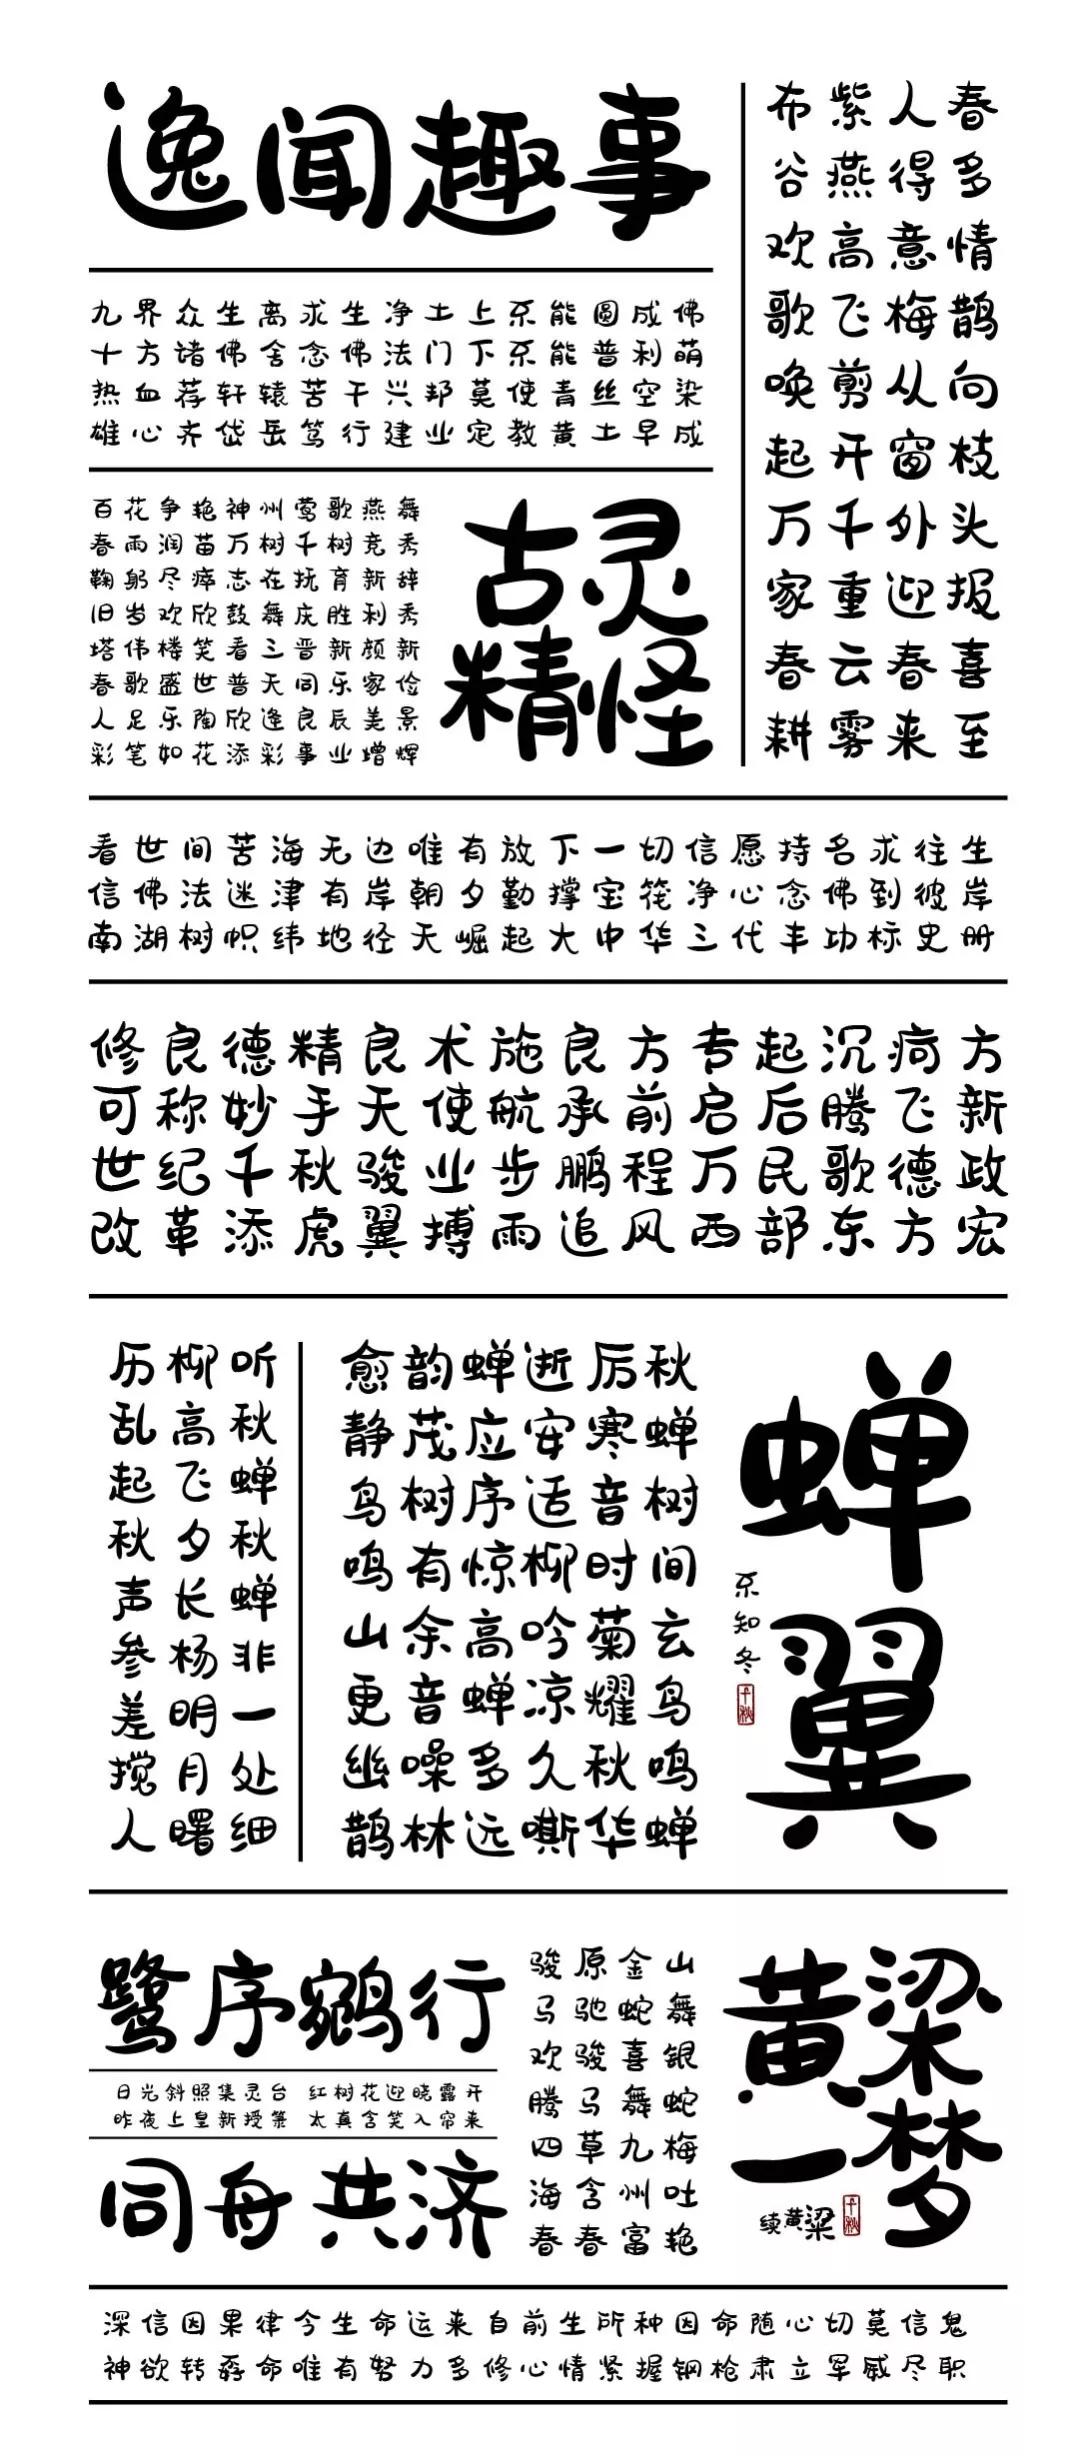 逸闻趣事
九界众生离求生净土上不能圆成佛
十方诸佛舍念佛法门下不能普利萌
热血荐轩辕苦干兴邦莫使青丝空染
雄心齐岱岳笃行建业定教黄土早成
春多情鹊向枝头报喜至
人得意梅从窗外迎春来
紫燕高飞剪开千重云雾
布谷欢歌唤起万家春耕
百花争艳神州莺歌燕舞
春雨润苗万树千树竞秀
鞠躬尽瘁志在抚育新辞
旧岁欢欣鼓舞庆胜利秀
塔伟楼笑看三晋新颜新
春歌盛世普天同乐家俭
人足乐陶欣逢良辰美景
彩笔如花添彩事业增辉
古灵
精怪
看世间苦海无边唯有放下一切信愿持名求往生
信佛法迷津有岸朝夕勤撑宝筏净心念佛到彼岸
南湖树帜纬地径天崛起大中华三代丰功标史册
修良德精良术施良方专起沉疴方
可称妙手天使航承前启后腾飞新
世纪千秋骏业步鹏程万民歌德政
改革添虎翼搏雨追风西部东方宏
蝉翼
不知冬
千秋
秋蝉树间玄鸟鸣蝉
厉寒音时菊耀秋华
逝安适柳吟凉久嘶
蝉应序惊高蝉多远
韵茂树有余音噪林
愈静鸟鸣山更幽鹊
听秋蝉秋蝉非一处细
柳高飞夕长杨明月曙
历乱起秋声参差搅人
鹭序鹓行
日光斜照集灵台 红树花迎晓露开
昨夜上皇新授箓 太真含笑入帘来
同舟共济
山舞银蛇梅吐艳
金蛇喜舞九州富
原驰骏马草含春
骏马欢腾四海春
黄粱
一梦
续黄粱
千秋
深信因果律今生命运来自前生所种因命随心切莫信鬼
神欲转孬命唯有努力多修心情紧握钢枪肃立军威尽职